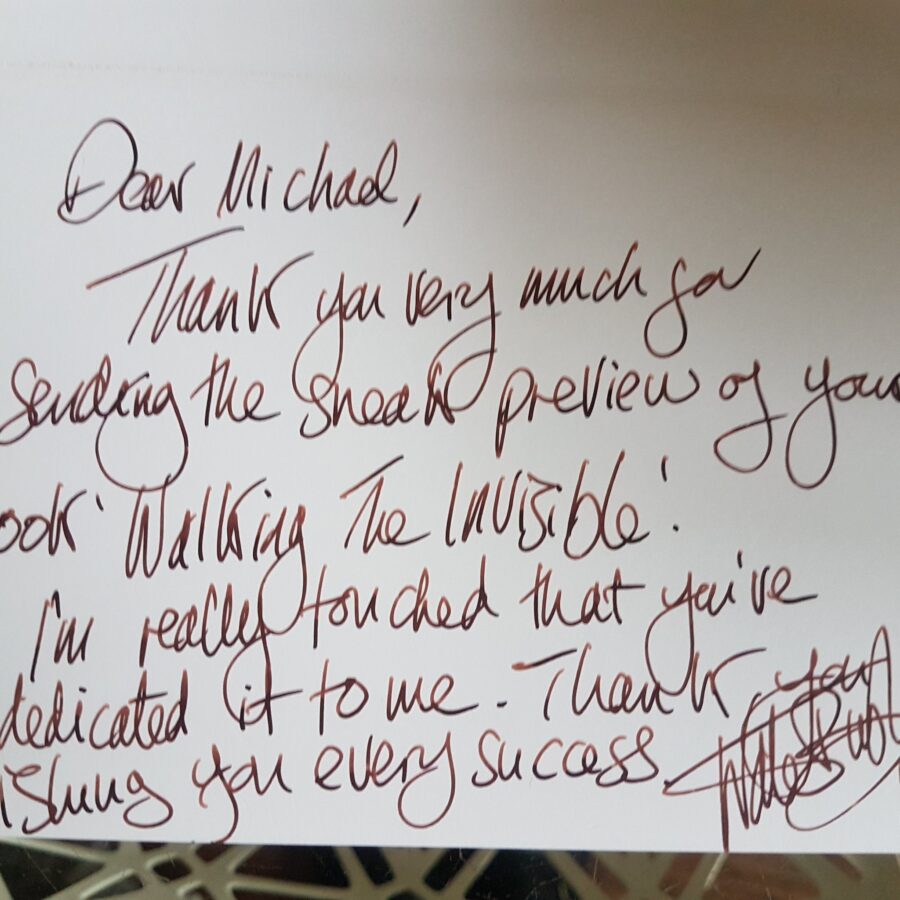 Dear Michael,
Thank you very much for
Sending the sneak preview of your
ook 'Walking The Invisible'.
I'm really touched that you've
dedicated it to me. Thank you
ishing you every success.